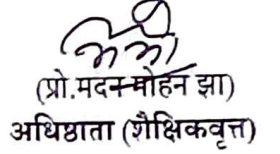 (प्रो.मदन मोहन झा)
अधिष्ठाता (शैक्षिकवृत्त)